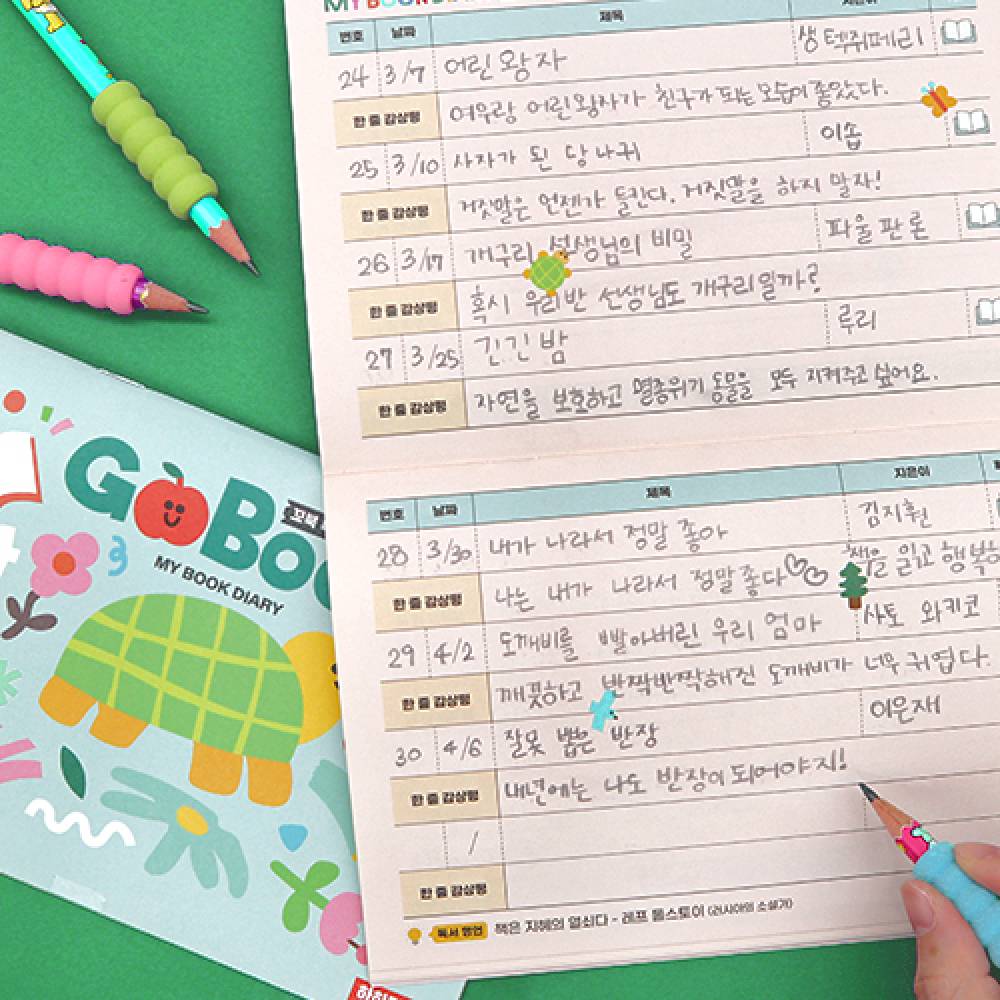 MY BOOK DIARY
번호 날짜 제목 지은이
24 3/7 어린 왕자 생텍쥐페리
한 줄 감상평 여우랑 어린왕자가 친구가 되는 모습이 좋았다.
25 3/10 사자가 된 당나귀 이솝
한 줄 감상평 거짓말은 언젠가 들킨다. 거짓말을 하지 말자!
26 3/17 개구리 선생님의 비밀 파울 판론
한 줄 감상평 혹시 우리반 선생님도 개구리일까?
27 3/25 긴긴 밤 루리
한 줄 감상평 자연을 보호하고 멸종위기 동물을 모두 지켜주고 싶어요.
번호 날짜 제목 지은이
28 3/30 내가 나라서 정말 좋아 김지훤
한 줄 감상평 나는 내가 나라서 정말 좋다 책을 읽고 행복
29 4/2 도깨비를 빨아버린 우리 엄마 사토 와키코
한 줄 감상평 깨끗하고 반짝반짝해진 도깨비가 너무 귀엽다.
30 4/6 잘못 뽑은 반장 이은재
한 줄 감상평 내년에는 나도 반장이 되어야지!
/
한 줄 감상평
독서 명언 책은 지혜의 열쇠다 - 레프 톨스토이 (러시아의 소설가)
GOBOO
MY BOOK DIARY